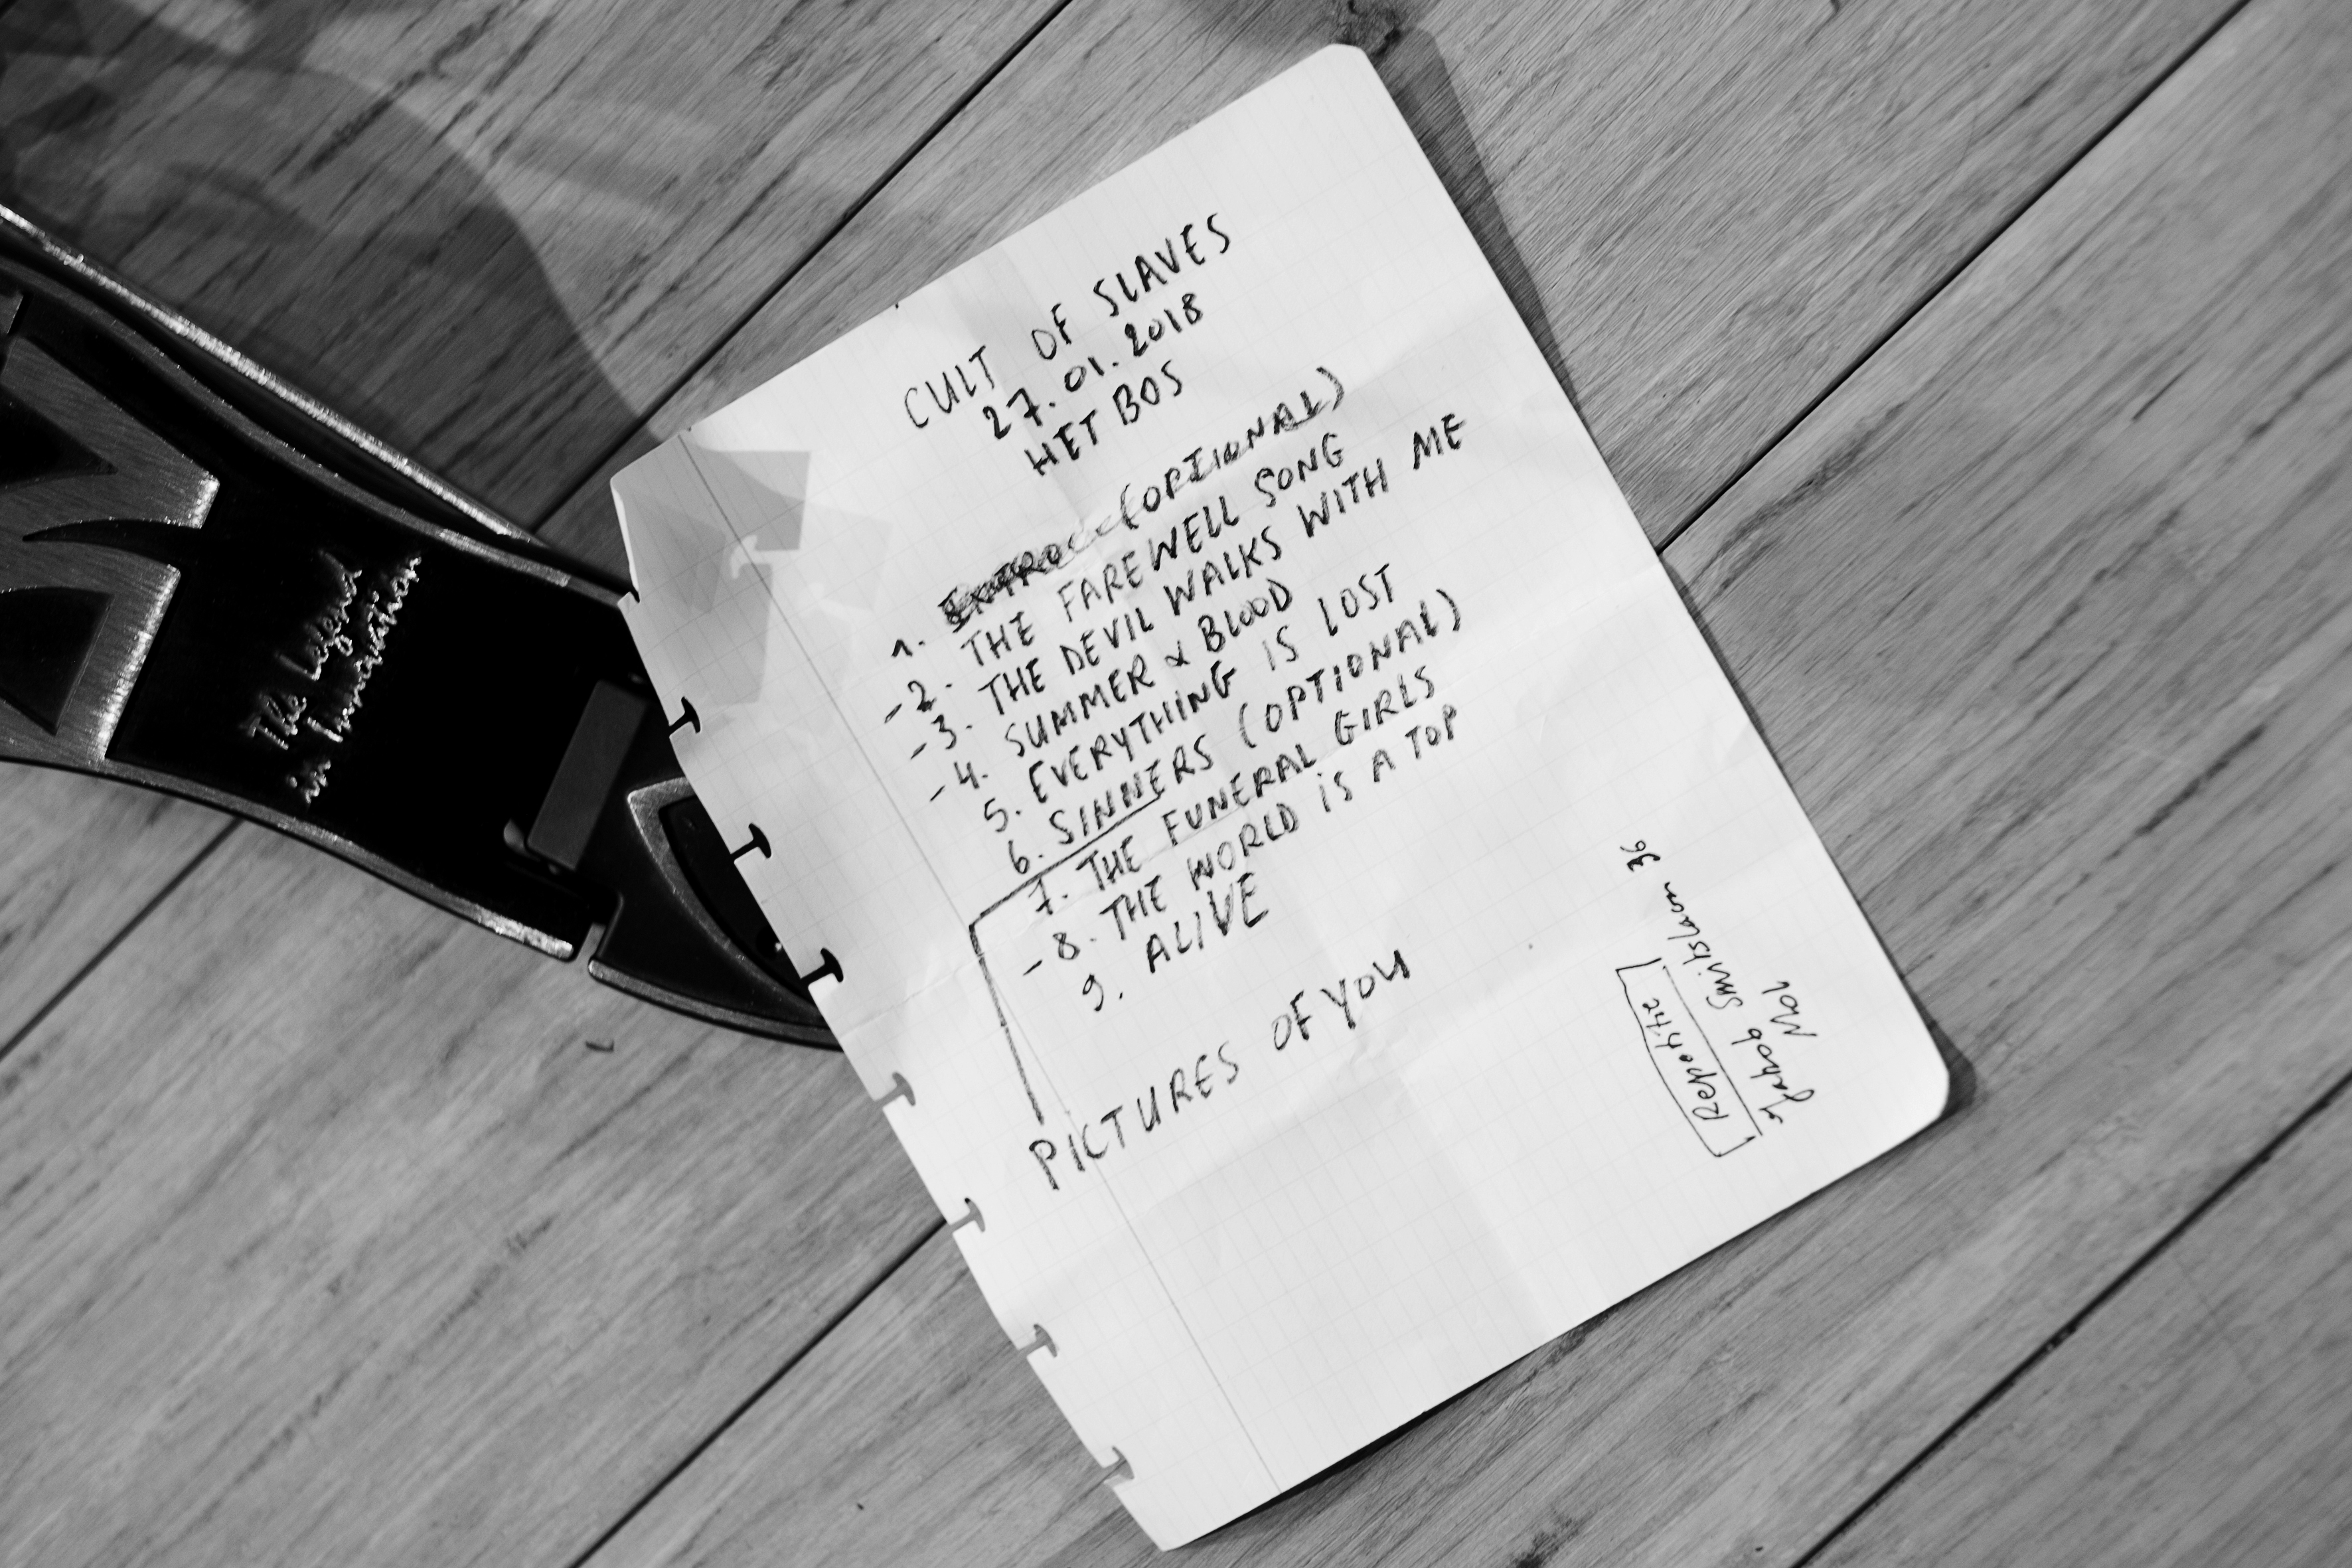 CULT OF SLAVES
27.01.2018
HET BOS
1. INTRO (OPTIONAL)
-2. THE FAREWELL SONG
-3. THE DEVIL WALKS WITH ME
-4. SUMMER & BLOOD
5. EVERYTHING IS LOST
6. SINNERS (OPTIONAL)
7. THE FUNERAL GIRLS
-8. THE WORLD IS A TOP
9. ALIVE
PICTURES OF YOU
Repetitie
Jakob Smitslaan 36
Mol
The Legend
in Innovation